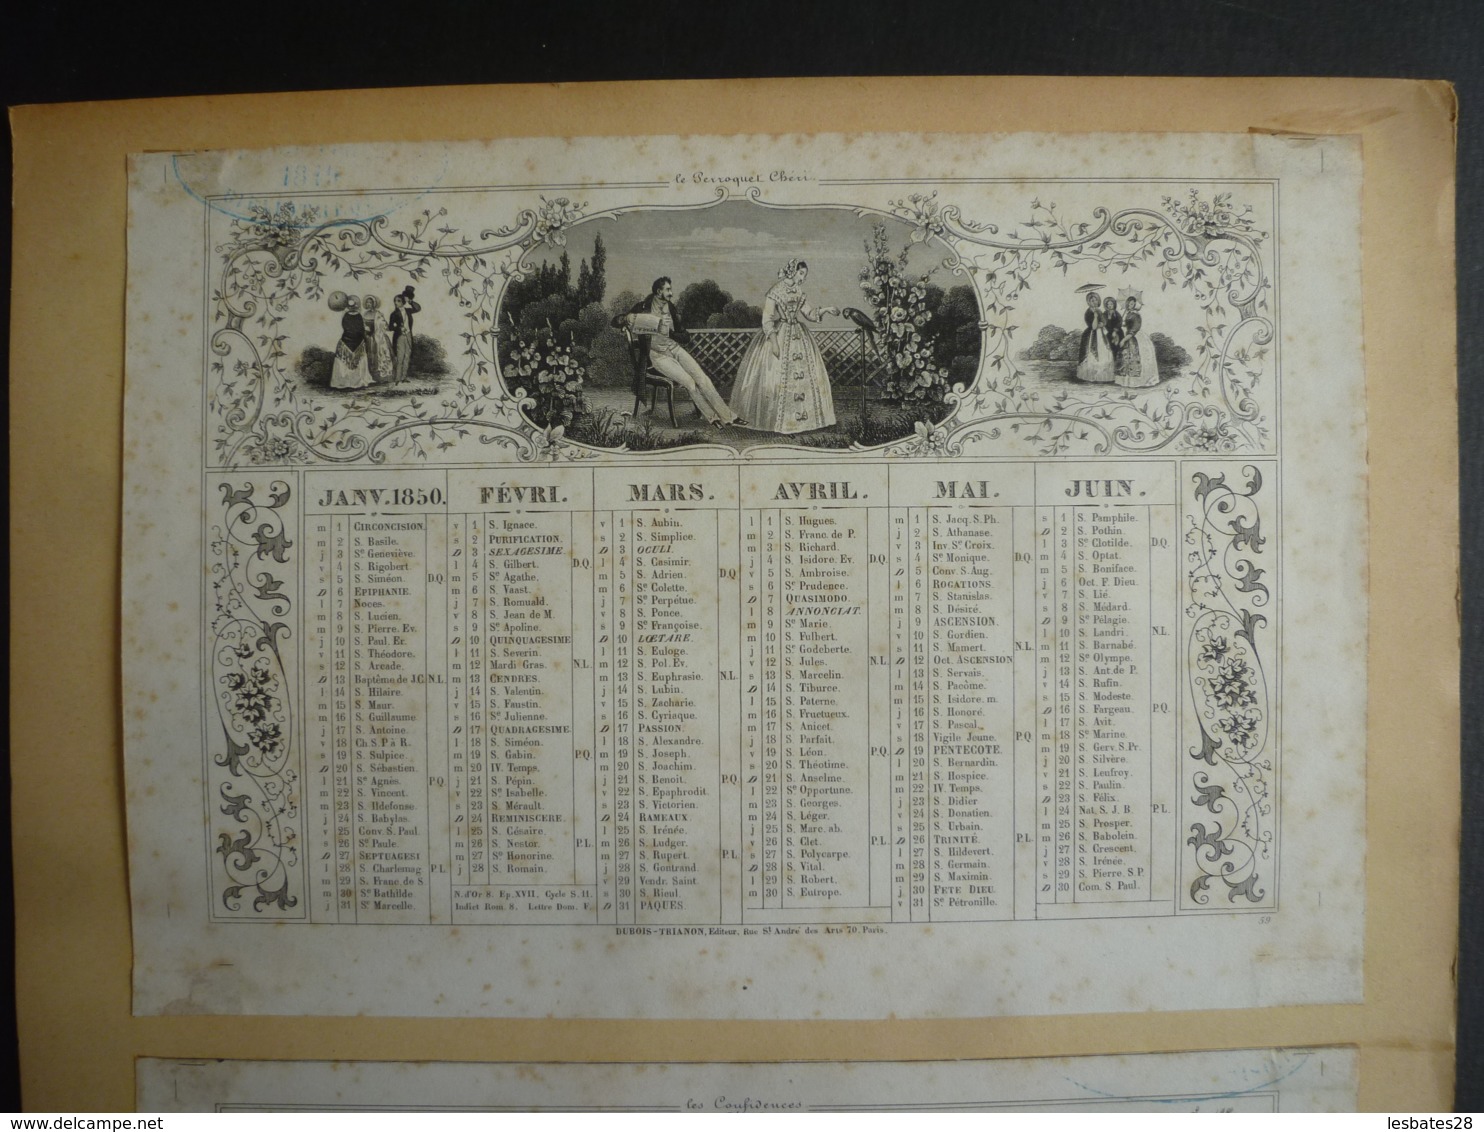 1849
le Perroquet Chéri.
JANV. 1850.
m 1 CIRCONCISION.
m 2 S. Basile.
j 3 Ste Geneviève.
v 4 S. Rigobert
s 5 S. Siméon. D.Q.
D 6 EPIPHANIE.
l 7 Noces.
m 8 S. Lucien.
m 9 S. Pierre. Ev.
j 10 S. Paul. Er.
v 11 S. Théodore.
s 12 S. Arcade.
D 13 Baptême de J.C. N.L.
l 14 S. Hilaire.
m 15 S. Maur.
m 16 S. Guillaume
j 17 S. Antoine
v 18 Ch. S. P. à R.
s 19 S. Sulpice.
D 20 S. Sébastien.
l 21 Ste Agnès. P.Q.
m 22 S. Vincent.
m 23 S. Ildefonse.
j 24 S. Babylas.
v 25 Conv. S. Paul.
s 26 Ste Paule.
D 27 SEPTUAGESI
l 28 S. Charlemag P.L
m 29 S. Franc. de S
m 30 Ste Bathilde
j 31 Se Marcelle.
FÉVRI.
v 1 S. Ignace.
s 2 PURIFICATION.
D 3 SEXAGESIME.
l 4 S. Gilbert. D.Q.
m 5 Se Agathe.
m 6 S. Vaast.
j 7 S. Romuald.
v 8 S. Jean de M.
s 9 Se Apoline.
D 10 QUINQUAGESIME
l 11 S. Severin.
m 12 Mardi Gras. N.L.
m 13 CENDRES.
j 14 S. Valentin.
v 15 S. Faustin.
s 16 Se Julienne.
D 17 QUADRAGESIME.
l 18 S. Siméon.
m 19 S. Gabin. P.Q.
m 20 IV. Temps.
j 21 S. Pépin.
v 22 Se Isabelle.
s 23 S. Mérault.
D 24 REMINISCERE.
l 25 S. Césaire.
m 26 S. Nestor. P.L
m 27 Se Honorine.
j 28 S. Romain.
N. d'Or 8. Ep. XVII. Cycle S. 11.
Indict Rom. 8. Lettre Dom. F.
MARS.
v 1 S. Aubin.
s 2 S. Simplice.
D 3 OCULI.
l 4 S. Casimir.
m 5 S. Adrien. D.Q
m 6 Se Colette.
j 7 Se Perpétue.
v 8 S. Ponce.
s 9 Se Françoise.
D 10 LŒTARE.
l 11 S. Euloge.
m 12 S. Pol. Ev.
m 13 S. Euphrasie. N.L.
j 14 S. Lubin.
v 15 S. Zacharie.
s 16 S. Cyriaque.
D 17 PASSION.
l 18 S. Alexandre.
m 19 S. Joseph.
m 20 S. Joachim.
j 21 S. Benoit. P.Q.
v 22 S. Epaphrodit.
s 23 S. Victorien.
D 24 RAMEAUX.
l 25 S. Irénée.
m 26 S. Ludger.
m 27 S. Rupert. P.L
j 28 S. Gontrand.
v 29 Vendr. Saint
s 30 S. Rieul.
D 31 PÂQUES.
AVRIL.
l 1 S. Hugues.
m 2 S. Franc. de P.
m 3 S. Richard.
j 4 S. Isidore. Ev. D.Q.
v 5 S. Ambroise.
s 6 Se Prudence.
D 7 QUASIMODO.
l 8 ANNONCIAT.
m 9 Se Marie
m 10 S. Fulbert.
j 11 Se Godeberte.
v 12 S. Jules. N.L.
s 13 S. Marcelin.
D 14 S. Tiburce.
l 15 S. Paterne.
m 16 S. Fructueux.
m 17 S. Anicet.
j 18 S. Parfait.
v 19 S. Léon. P.Q.
s 20 S. Théotime.
D 21 S. Anselme.
l 22 Se Opportune.
m 23 S. Georges.
m 24 S. Léger.
j 25 S. Marc. ab.
v 26 S. Clet. P.L.
s 27 S. Polycarpe.
D 28 S. Vital.
l 29 S. Robert.
m 30 S. Eutrope.
MAI.
m 1 S. Jacq. S. Ph.
j 2 S. Athanase.
v 3 Inv. Se Croix.
s 4 Se Monique. D.Q.
D 5 Conv. S. Aug.
l 6 ROGATIONS.
m 7 S. Stanislas.
m 8 S. Désiré.
j 9 ASCENSION.
v 10 S. Gordien.
s 11 S. Mamert. N.L.
D 12 Oct. ASCENSION
l 13 S. Servais.
m 14 S. Pacôme.
m 15 S. Isidore. m.
j 16 S. Honoré.
v 17 S. Pascal.
s 18 Vigile Jeune. P.Q.
D 19 PENTECOTE.
l 20 S. Bernardin.
m 21 S. Hospice.
m 22 IV. Temps.
j 23 S. Didier
v 24 S. Donatien.
s 25 S. Urbain.
D 26 TRINITÉ P.L.
l 27 S. Hildevert.
m 28 S. Germain.
m 29 S. Maximin.
j 30 FETE DIEU.
v 31 Se Pétronille.
JUIN.
s 1 S. Pamphile.
D 2 S. Pothin.
l 3 Se Clotilde. D.Q.
m 4 S. Optat.
m 5 S. Boniface.
j 6 Oct. F. Dieu.
v 7 S. Lié.
s 8 S. Médard.
D 9 Se Pélagie.
l 10 S. Landri. N.L.
m 11 S. Barnabé.
m 12 Se Olympe.
j 13 S. Ant. de P.
v 14 S. Rufin.
s 15 S. Modeste.
D 16 S. Fargeau. P.Q.
l 17 S. Avit.
m 18 Se Marine
m 19 S. Gerv. S. Pr.
j 20 S. Silvère.
v 21 S. Leufroy.
s 22 S. Paulin.
D 23 S. Félix.
l 24 Nat. S. J. B. P.L.
m 25 S. Prosper.
m 26 S. Babolein.
j 27 S. Crescent.
v 28 S. Irénée.
s 29 S. Pierre. S. P.
D 30 Com. S. Paul.
DUBOIS-TRIANON, Editeur, Rue St. André des Arts 70. Paris.
59
les Confidences
lesbates28